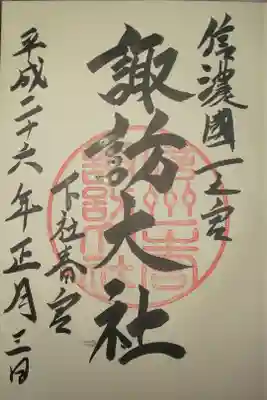 信濃國一之宮
諏訪大社
下社春宮
平成二十六年正月三日